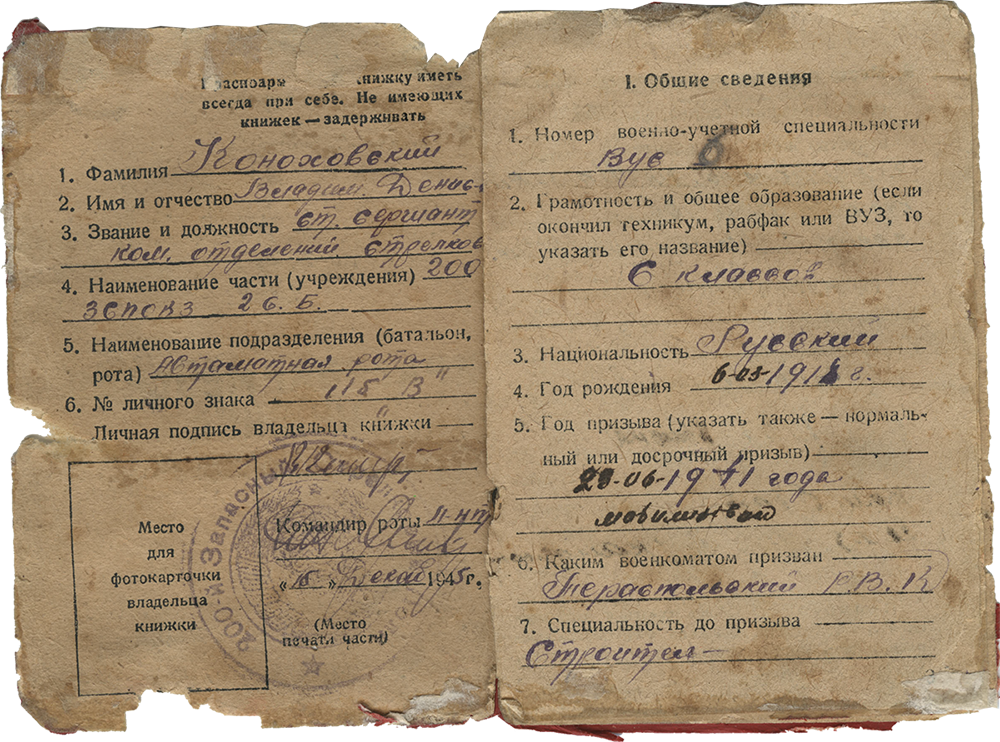 книжку иметь
всегда при себе. Не имеющих
книжек — задерживать
1. Фамилия Коноховский
2. Имя и отчество Владим. Денис
3. Звание и должность ст. сержант
ком. отделений стрелков
4. Наименование части (учреждения) 200
зспокз 2 б. Б.
5. Наименование подразделения (батальон,
рота) Автаматная рота
6. № личного знака 115 В"
Личная подпись владельца книжки
Место
для
фотокарточки
владельца
книжки
Командир роты
„15" Декаб 1945 г.
(Место
печати части)
200-й Запасный
I. Общие сведения
1. Номер военно-учетной специальности
Вус 6
2. Грамотность и общее образование (если
окончил техникум, рабфак или ВУЗ, то
указать его название)
6 классов
3. Национальность Русский
4. Год рождения 6-03-1918 г.
5. Год призыва (указать также — нормаль-
ный или досрочный призыв)
28-06-1941 года
6. Каким военкоматом призван
Р.В.К
7. Специальность до призыва
Строител